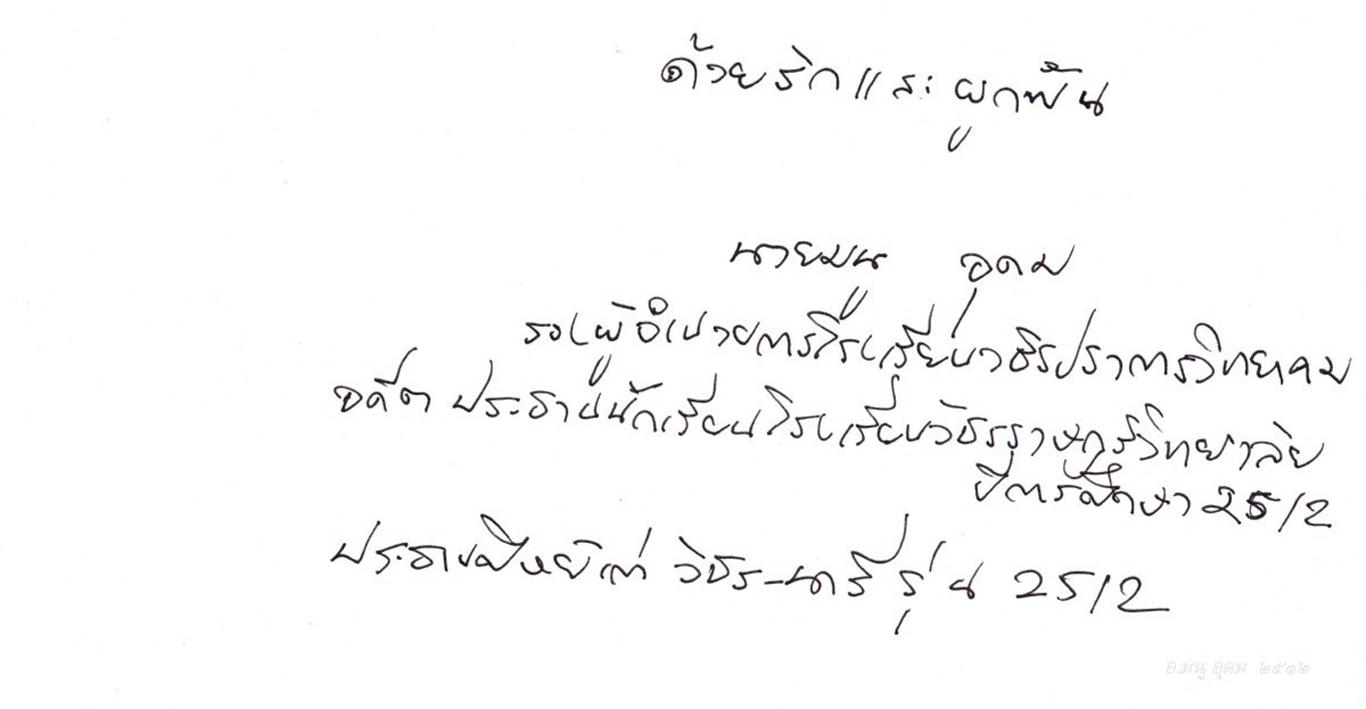 ด้วยรักและผูกพัน
นายมนู อุดม
รองผู้อำนวยการโรงเรียนวชิรปราการวิทยาคม
อดีตประธานนักเรียนโรงเรียนวัชรราษฎร์วิทยาลัย
ปีการศึกษา 2512
ประธานศิษย์เก่า วัชร-นารี รุ่น 2512
อ.มนู อุดม ๒๕๑๒